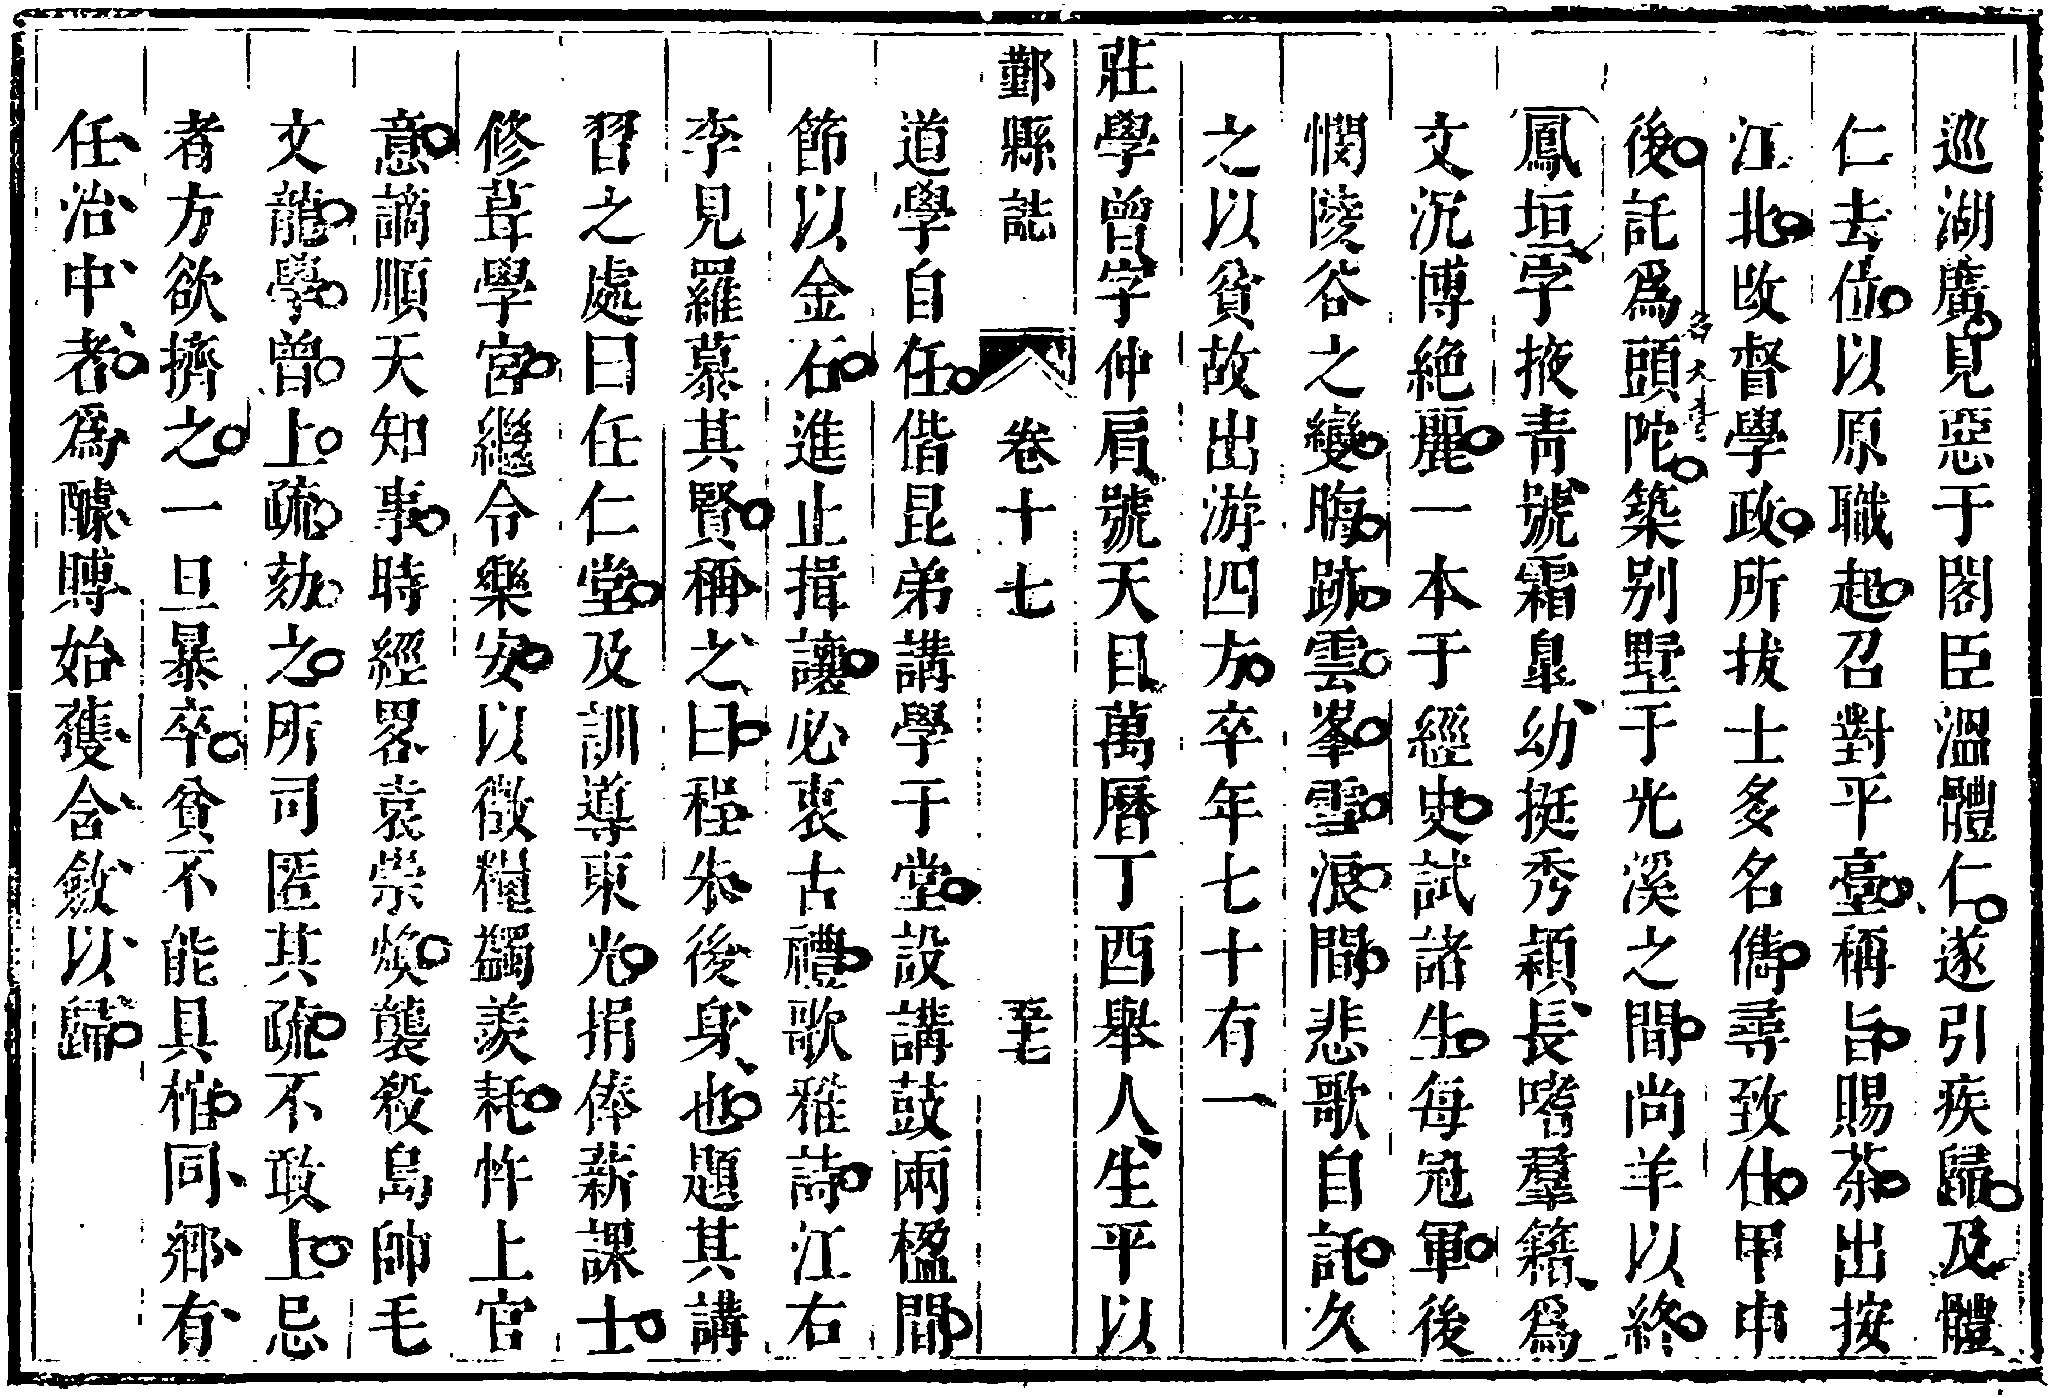 巡湖廣見惡于閣臣溫體仁遂引疾歸及體
仁去位以原職起召對平臺稱旨賜茶出按
江北改督學政所拔士多名儁尋致仕甲申
後託爲頭陀築别墅于光溪之間尚羊以終
名大章
鳳垣字掖青號霜皐幼挺秀穎長嗜羣籍爲
文沉博絶麗一本于經史試諸生每冠軍後
憫陵谷之變晦跡雲峯雪浪間悲歌自託久
之以貧故出游四方卒年七十有一
莊學曾字仲肩號天目萬曆丁酉舉人生平以
鄞縣誌 卷十七 至七
道學自任偕昆弟講學于堂設講鼓兩楹間
節以金石進止揖讓必衷古禮歌雅詩江右
李見羅慕其賢稱之曰程朱後身也題其講
習之處曰任仁堂及訓導東光捐俸薪課士
修葺學宮繼令樂安以徵糧蠲羨耗忤上官
意謫順天知事時經畧袁崇煥襲殺島帥毛
文龍學曾上疏劾之所司匿其疏不敢上忌
者方欲擠之一旦暴卒貧不能具棺同鄉有
任治中者爲醵賻始獲含斂以歸